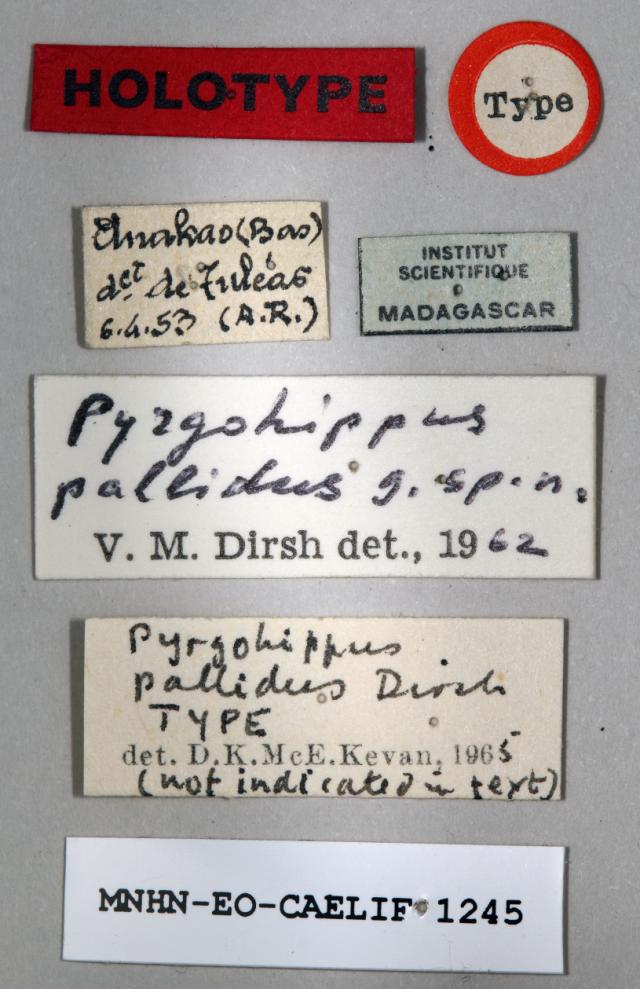 HOLOTYPE
Type
Anakao (Bas)
dct de Tuléar
6.4.53 (A.R.)
INSTITUT
SCIENTIFIQUE
MADAGASCAR
Pyrgohippus
pallidus g. sp. n.
V. M. Dirsh det., 1962
Pyrgohippus
pallidus Dirsh
TYPE
det. D.K.McE.Kevan, 1965
(not indicated in text)
MNHN-EO-CAELIF 1245